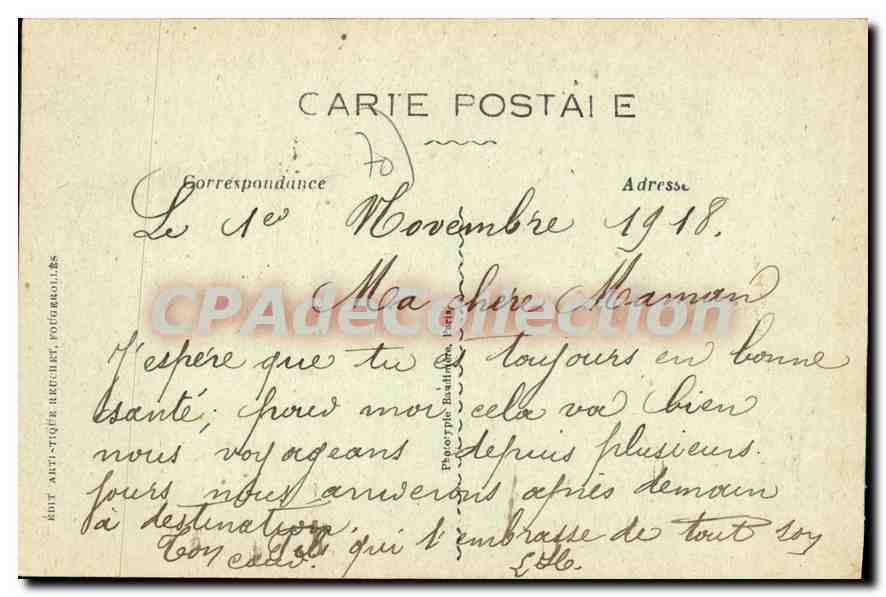 CARTE POSTALE
70
Correspondance
Adresse
Le 1er Novembre 1918.
Ma chère Maman
J'espère que tu es toujours en bonne
santé; pour moi cela va bien
nous voyageons depuis plusieurs
jours nous arriverons après demain
à destination.
Ton fils qui t'embrasse de tout son
cœur.
EDIT ARTISTIQUE REUCHET, FOUGEROLLES
Phototypie Baudinière, Paris
CPAdeCollection